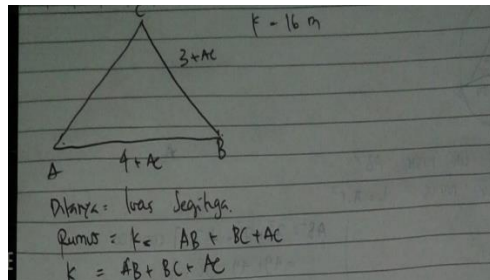 C
K = 16 m
3 + AC
A
B
4 + AC
Ditanya = luas Segitiga.
Rumus = K = AB + BC + AC
K = AB + BC + AC